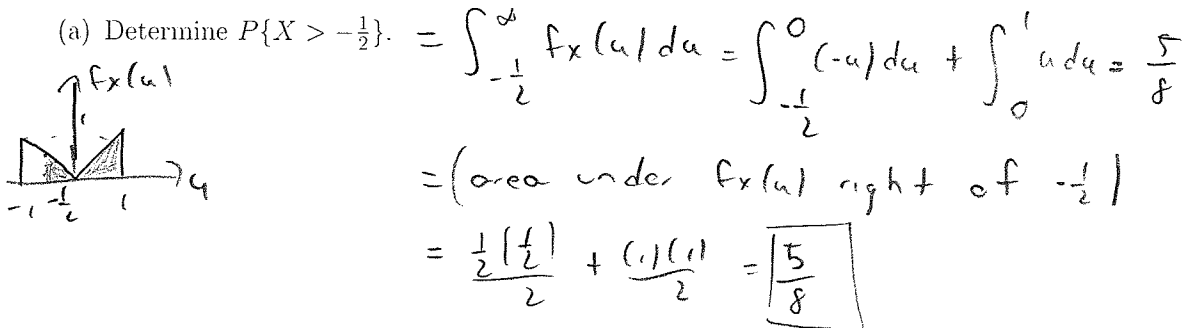 (a) Determine P{X > -1/2}. = ∫_{-1/2}^{∞} fx(u) du = ∫_{-1/2}^{0} (-u) du + ∫_{0}^{1} u du = 5/8
fx(u)
1
-1 -1/2 1 u
= (area under fx(u) right of -1/2)
= 1/2(1/2)/2 + (1)(1)/2 = 5/8